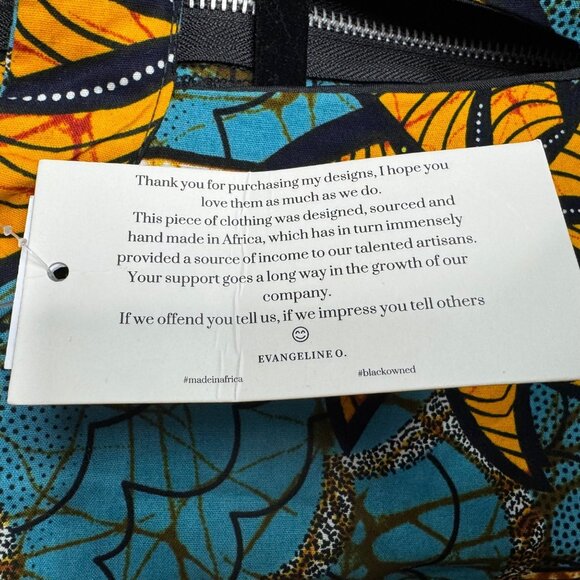 Thank you for purchasing my designs, I hope you
love them as much as we do.
This piece of clothing was designed, sourced and
hand made in Africa, which has in turn immensely
provided a source of income to our talented artisans.
Your support goes a long way in the growth of our
company.
If we offend you tell us, if we impress you tell others
😊
EVANGELINE O.
#madeinafrica #blackowned